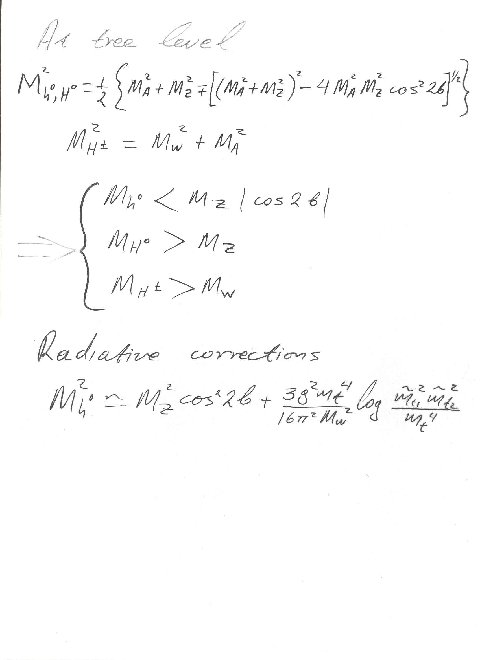 At tree level
M²h⁰,H⁰ = 1/2 { M²A + M²Z ∓ [(M²A + M²Z)² − 4 M²A M²Z cos² 2β]^1/2 }
M²H± = M²W + M²A
⇒ { Mh⁰ < MZ | cos 2β |
MH⁰ > MZ
MH± > MW
Radiative corrections
M²h⁰ ≃ M²Z cos² 2β + 3g² mt⁴ / 16π² MW² log m̃²t1 m̃²t2 / mt⁴